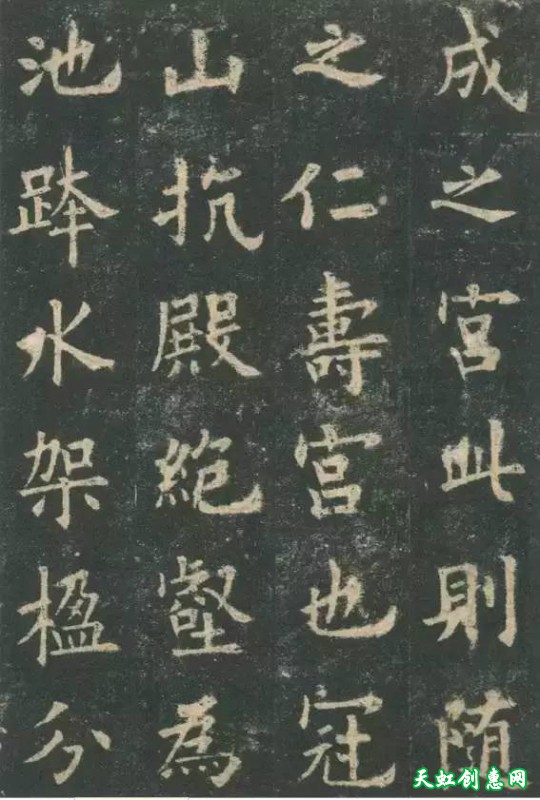 成之宮此則随
之仁壽宮也冠
山抗殿絶壑為
池跨水架楹分
天虹创惠网